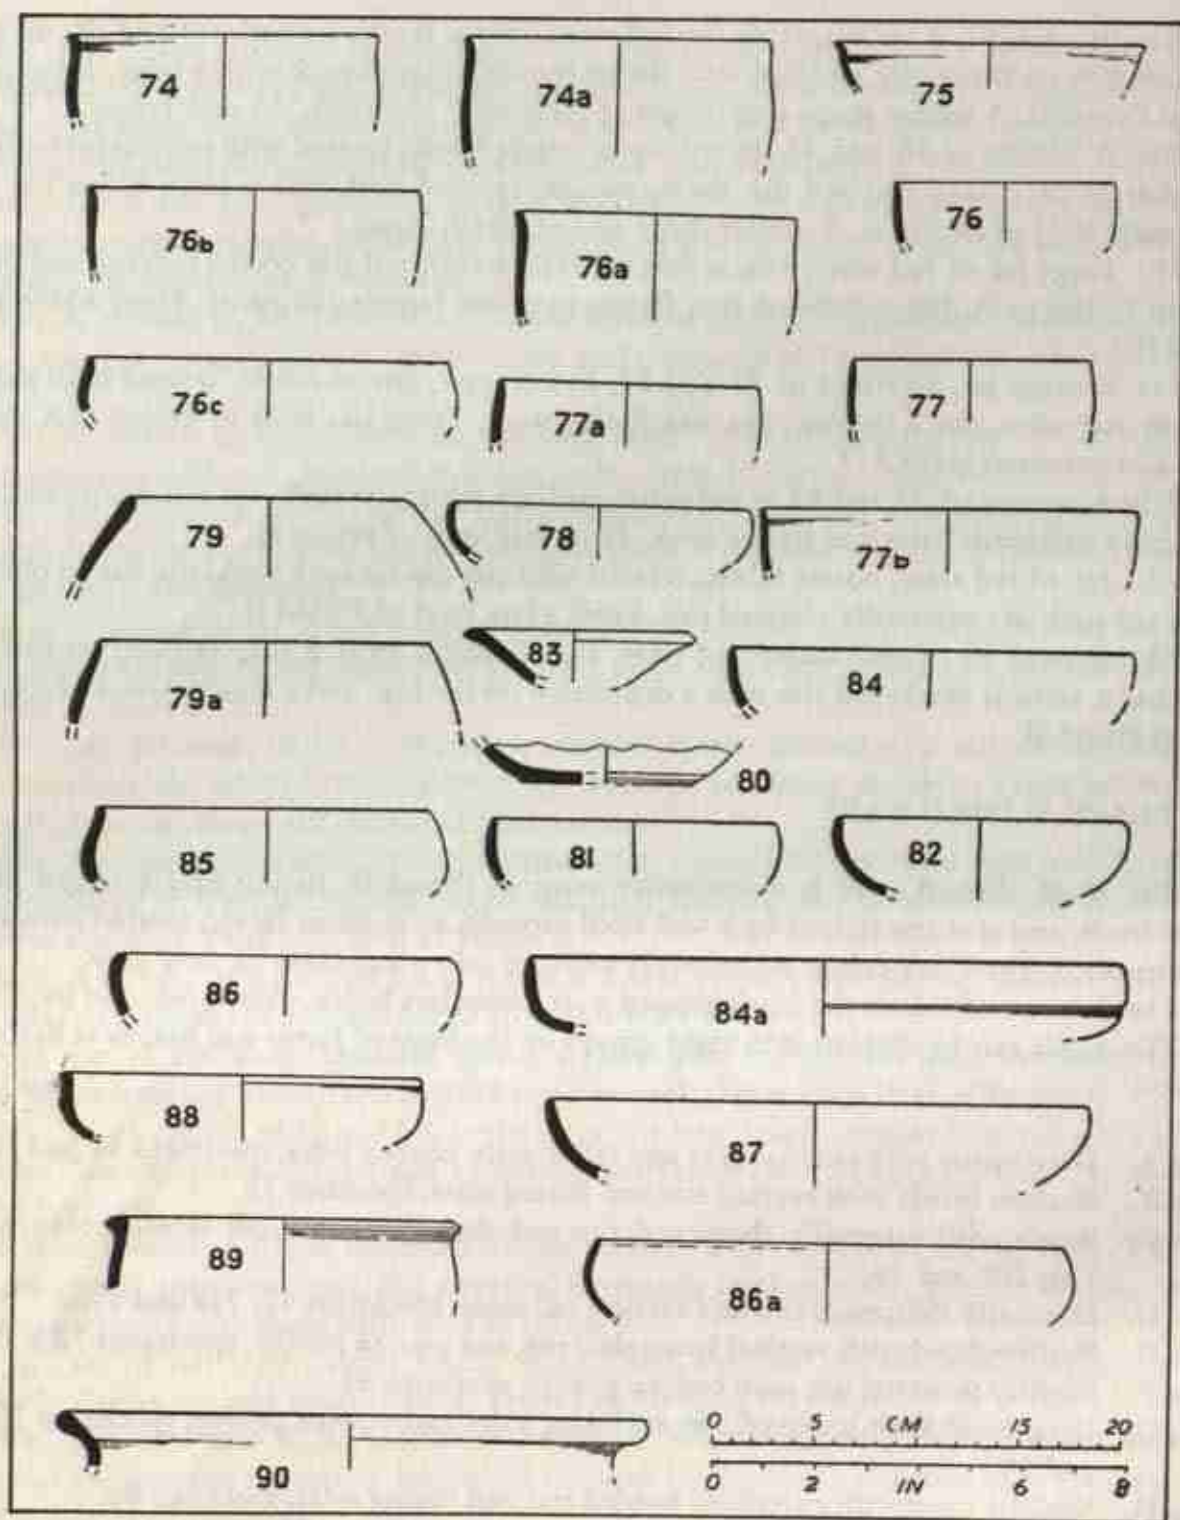 74 74a 75
76b 76a 76
76c 77a 77
79 78 77b
79a 83 84
80
85 81 82
86 84a
88 87
89 86a
90
0 5 CM 15 20
0 2 IN 6 8